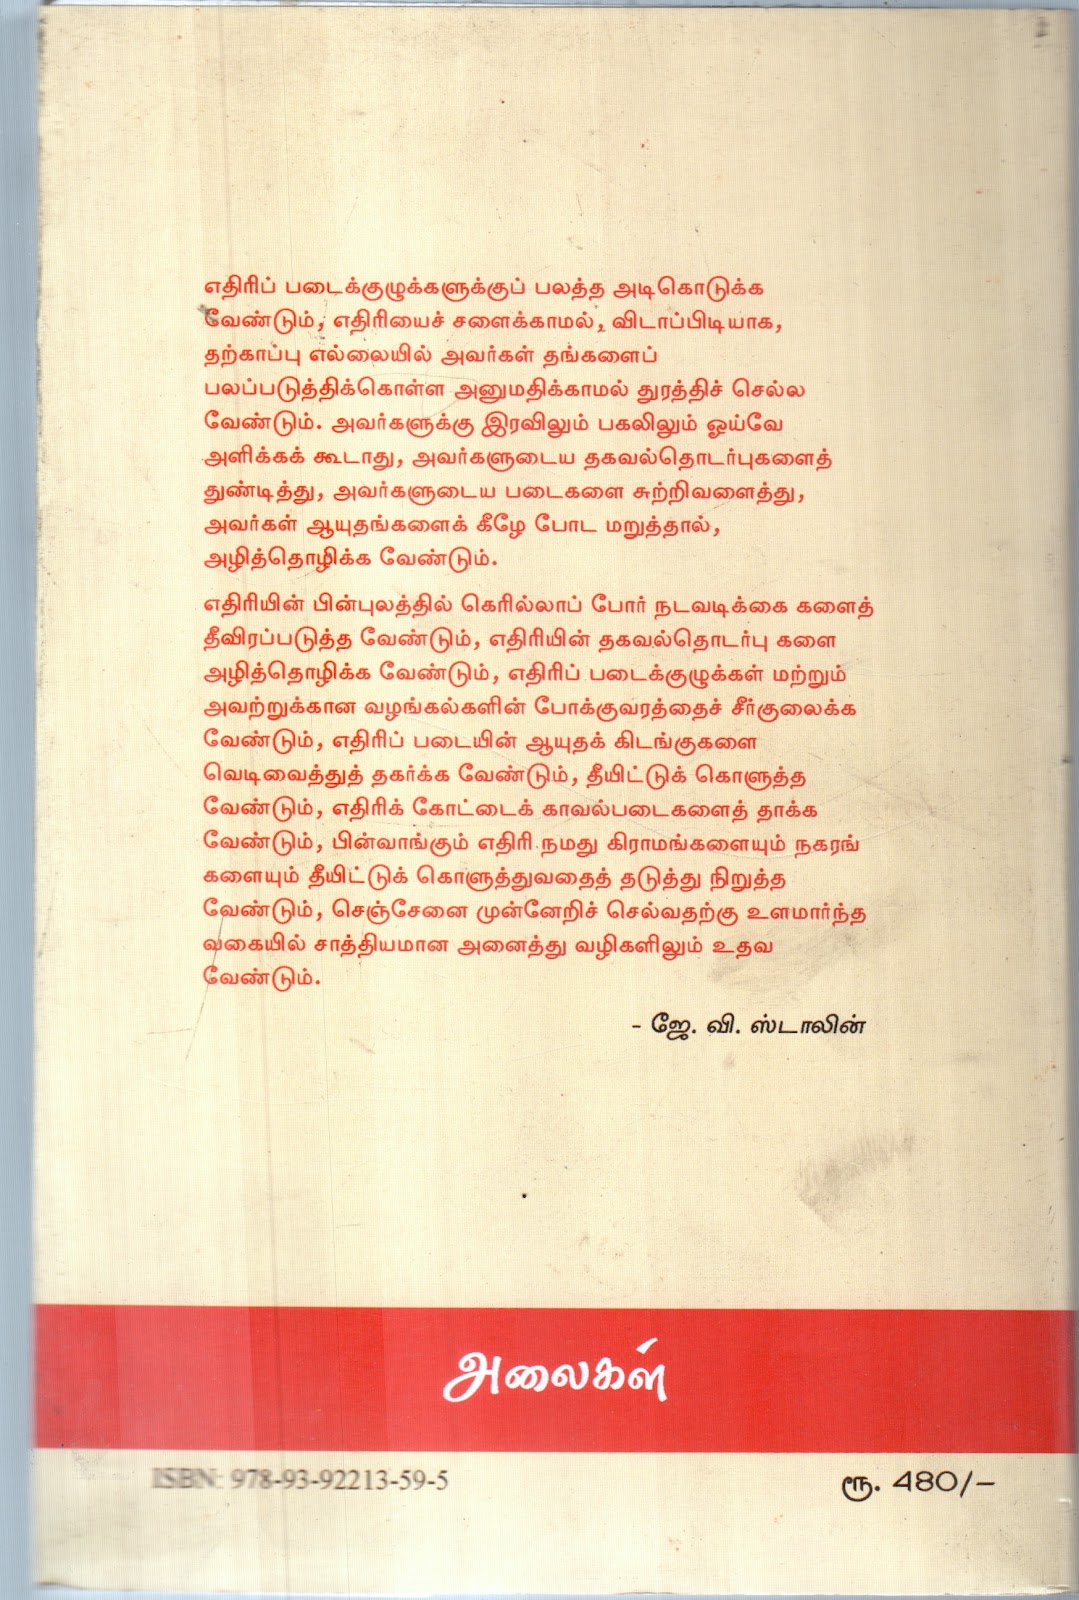 எதிரிப் படைக்குழுக்களுக்குப் பலத்த அடிகொடுக்க
வேண்டும், எதிரியைச் சளைக்காமல், விடாப்பிடியாக,
தற்காப்பு எல்லையில் அவர்கள் தங்களைப்
பலப்படுத்திக்கொள்ள அனுமதிக்காமல் துரத்திச் செல்ல
வேண்டும். அவர்களுக்கு இரவிலும் பகலிலும் ஓய்வே
அளிக்கக் கூடாது, அவர்களுடைய தகவல்தொடர்புகளைத்
துண்டித்து, அவர்களுடைய படைகளை சுற்றிவளைத்து,
அவர்கள் ஆயுதங்களைக் கீழே போட மறுத்தால்,
அழித்தொழிக்க வேண்டும்.
எதிரியின் பின்புலத்தில் கெரில்லாப் போர் நடவடிக்கை களைத்
தீவிரப்படுத்த வேண்டும், எதிரியின் தகவல்தொடர்பு களை
அழித்தொழிக்க வேண்டும், எதிரிப் படைக்குழுக்கள் மற்றும்
அவற்றுக்கான வழங்கல்களின் போக்குவரத்தைச் சீர்குலைக்க
வேண்டும், எதிரிப் படையின் ஆயுதக் கிடங்குகளை
வெடிவைத்துத் தகர்க்க வேண்டும், தீயிட்டுக் கொளுத்த
வேண்டும், எதிரிக் கோட்டைக் காவல்படைகளைத் தாக்க
வேண்டும், பின்வாங்கும் எதிரி நமது கிராமங்களையும் நகரங்
களையும் தீயிட்டுக் கொளுத்துவதைத் தடுத்து நிறுத்த
வேண்டும், செஞ்சேனை முன்னேறிச் செல்வதற்கு உளமார்ந்த
வகையில் சாத்தியமான அனைத்து வழிகளிலும் உதவ
வேண்டும்.
- ஜே. வி. ஸ்டாலின்
அலைகள்
ISBN: 978-93-92213-59-5
ரூ. 480/-